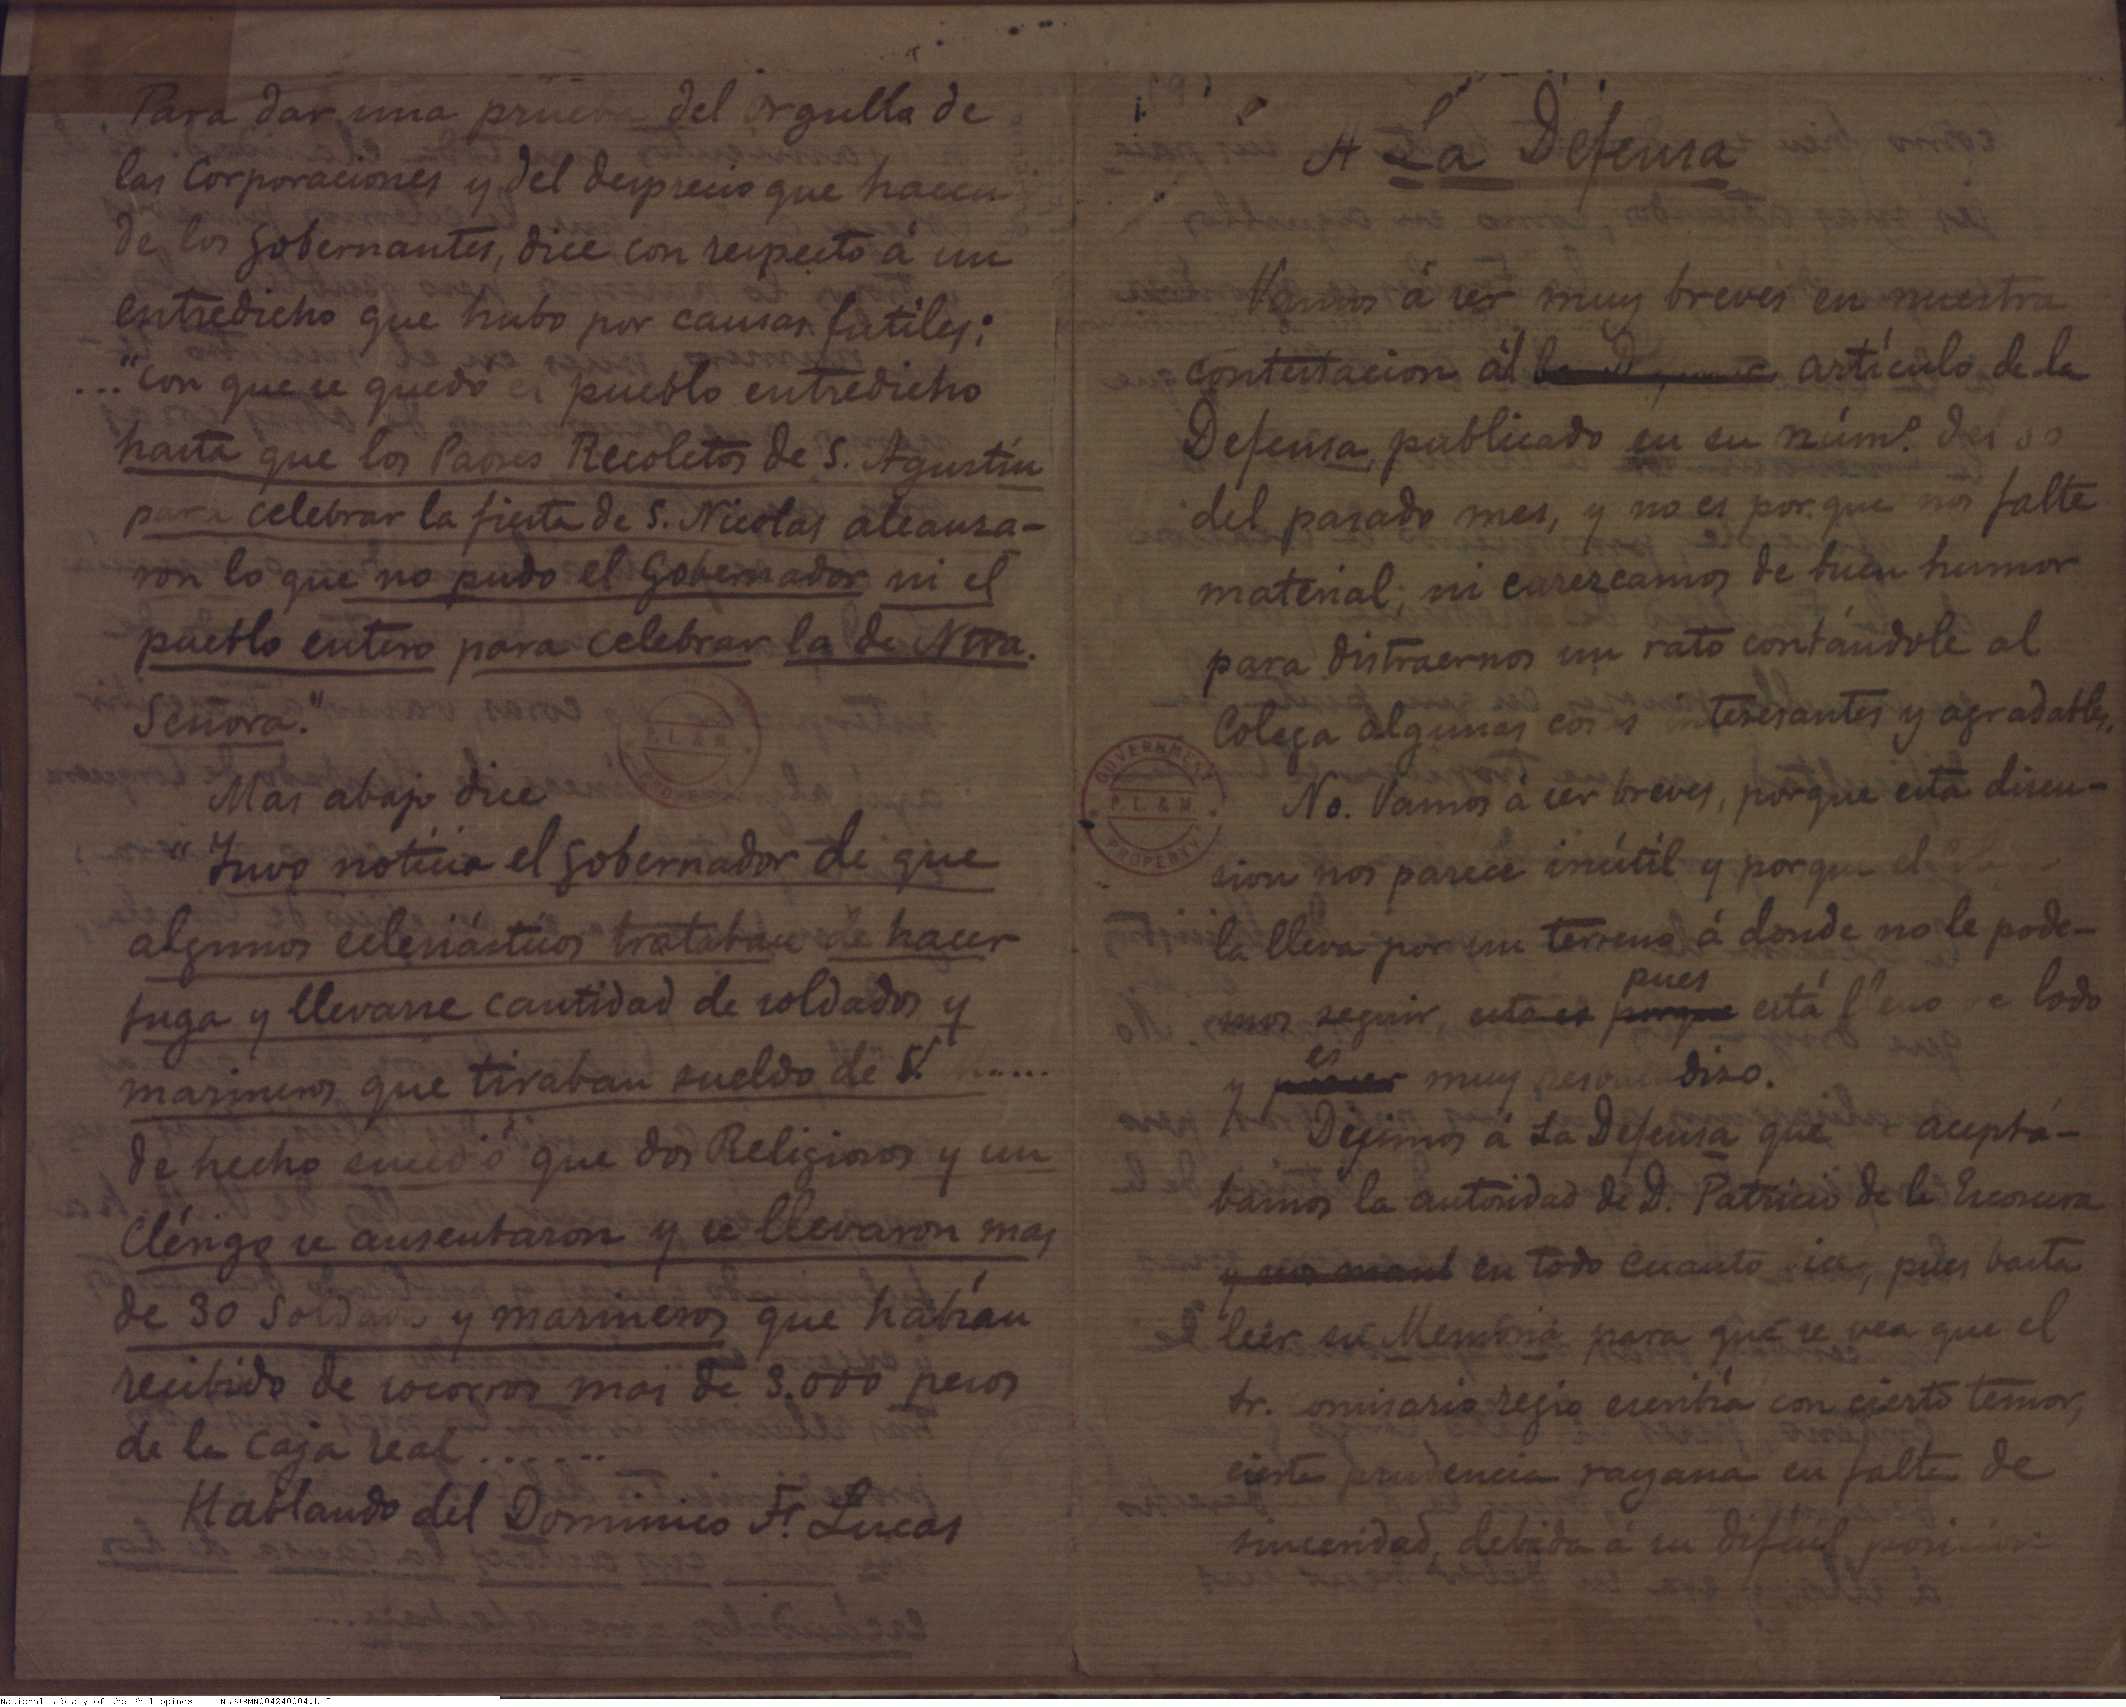 Para dar una prueba del orgullo de
las Corporaciones y del desprecio que hacen
de los gobernantes, dice con respecto á un
entredicho que hubo por causas futiles:
..."con que se quedó el pueblo entredicho
hasta que los Padres Recoletos de S. Agustin
para celebrar la fiesta de S. Nicolas alcanza-
ron lo que no pudo el Gobernador ni el
pueblo entero para celebrar la de Ntra.
Señora."
Mas abajo dice
"Tuvo noticia el gobernador de que
algunos eclesiásticos trataban de hacer
fuga y llevarse cantidad de soldados y
marineros que tiraban sueldo de S. .....
de hecho sucedió que dos Religiosos y un
Clérigo se ausentaron y se llevaron mas
de 30 soldados y marineros que habían
recibido de socorros mas de 3.000 pesos
de la caja real .......
Hablando del Dominico Fr. Lucas
A La Defensa
Vamos á ser muy breves en nuestra
contestacion ál artículo de la
Defensa, publicado en su núm.º del
del pasado mes, y no es porque nos falte
material, ni carezcamos de buen humor
para distraernos un rato contándole al
Colega algunas cosas interesantes y agradables.
No. Vamos á ser breves, porque esta discu-
sion nos parece inútil y porque el
la lleva por un terreno á donde no le pode-
mos seguir, esto es porque pues está lleno de lodo
y es muy resbaladizo.
Dijimos á La Defensa que aceptá-
bamos la autoridad de D. Patricio de la Escosura
en todo cuanto dice, pues basta
leer su Memoria para que se vea que el
Sr. Comisario regio escribía con cierto temor,
cierta prudencia rayana en falta de
sinceridad, debida á su dificil posicion
GOVERNMENT
P.L.&M.
PROPERTY